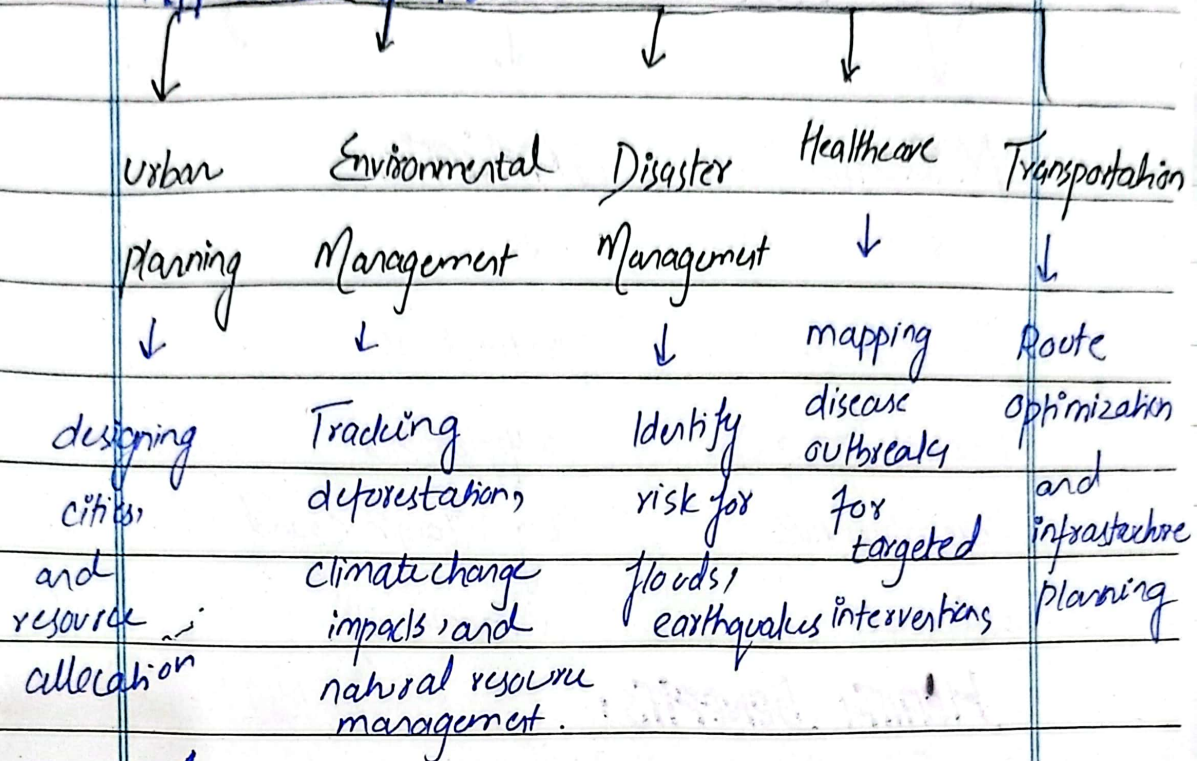 Urban
Planning
designing
cities,
and
resource
allocation
Environmental
Management
Tracking
deforestation,
climate change
impacts, and
natural resource
management.
Disaster
Management
Identify
risk for
floods,
earthquakes
Healthcare
mapping
disease
outbreaks
for
targeted
interventions
Transportation
Route
optimization
and
infrastructure
planning